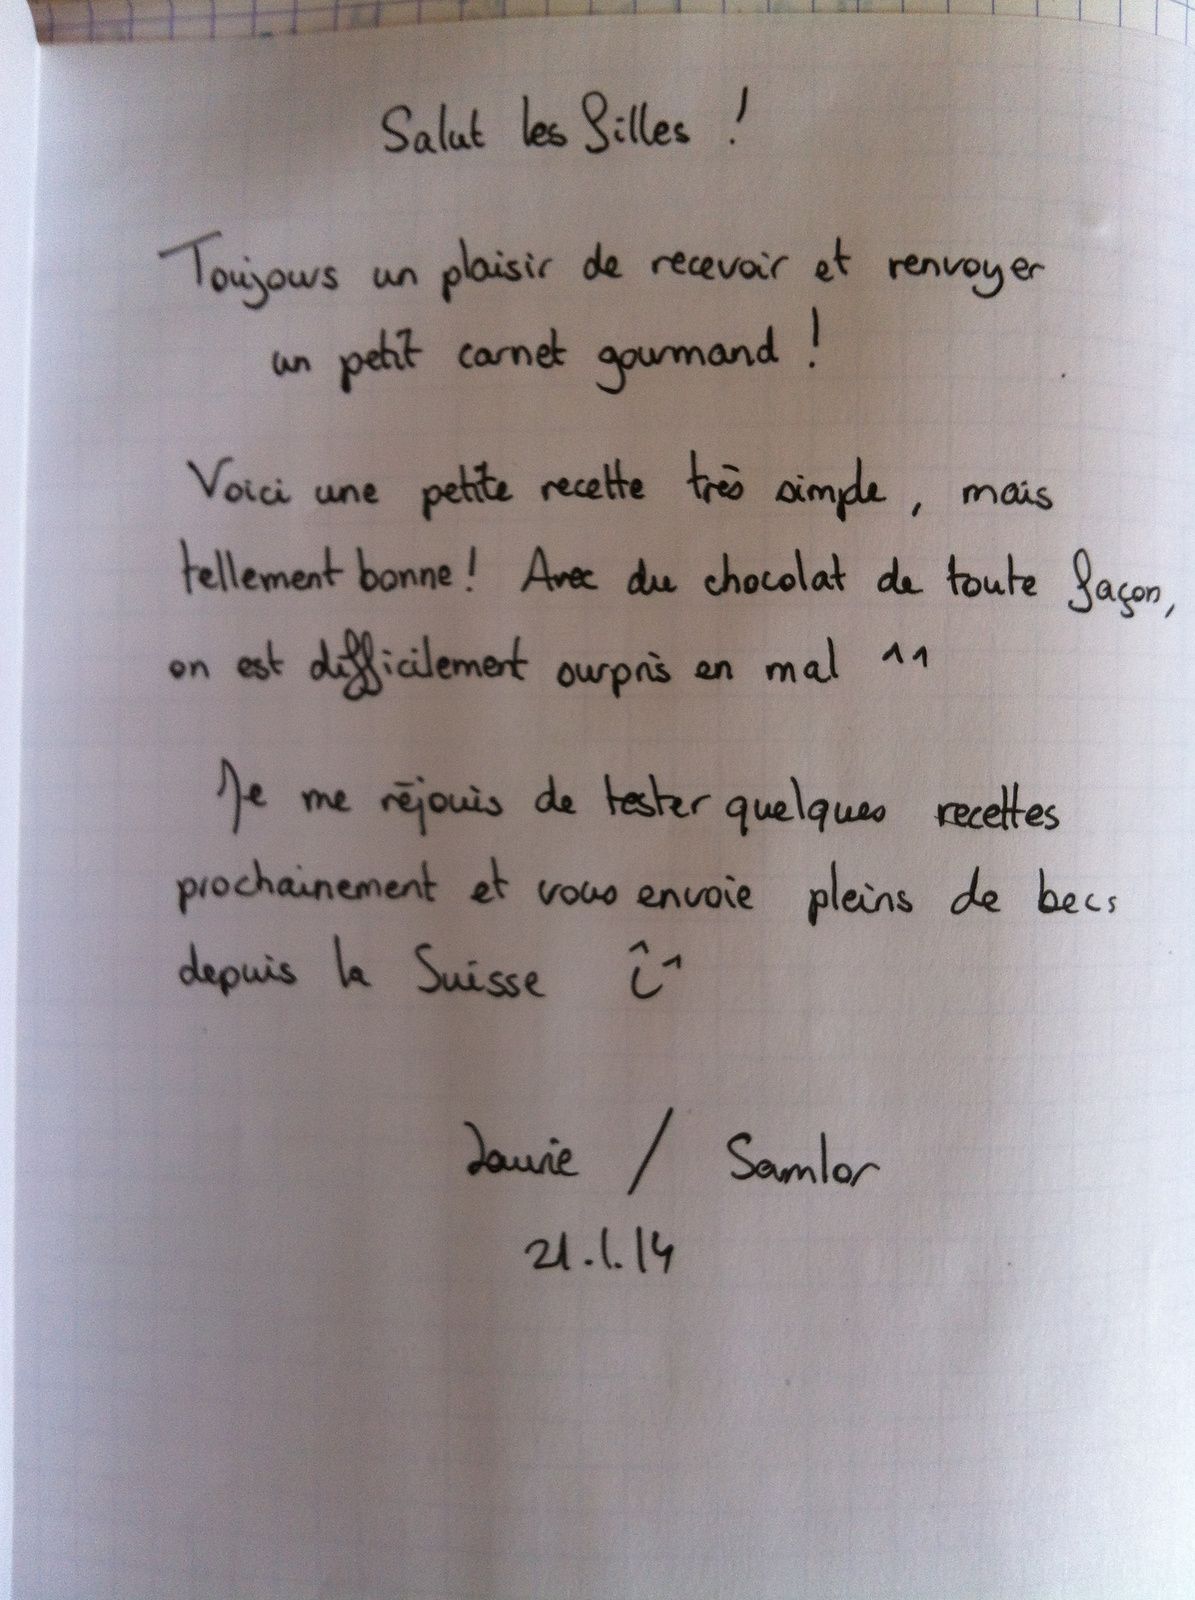 Salut les filles !
Toujours un plaisir de recevoir et renvoyer
un petit carnet gourmand !
Voici une petite recette très simple, mais
tellement bonne ! Avec du chocolat de toute façon,
on est difficilement surpris en mal ^^
Je me réjouis de tester quelques recettes
prochainement et vous envoie pleins de becs
depuis la Suisse ^^
Laurie / Samlor
21.1.14